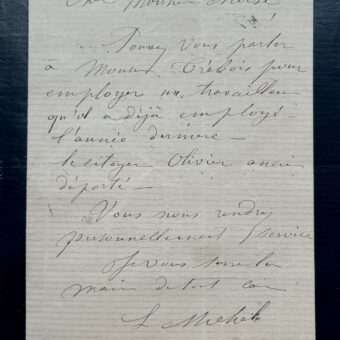 Cher Monsieur
Pouvez vous parler
à Monsieur Trébois pour
employer un travailleur
qu'il a déjà employé
l'année dernière —
le citoyen Olivier ancien
déporté —
Vous nous rendrez
personnellement service
Je vous serre la
main de tout cœur
L Michel